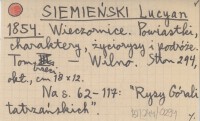 SIEMIEŃSKI Lucyan
1854. Wieczornice. Powiastki,
charaktery, życiorysy i podróże.
Tom trzeci — Wilno. Str. 294,
okt., cm 18 x 12.
Na s. 62-117: "Rysy Górali
tatrzańskich".